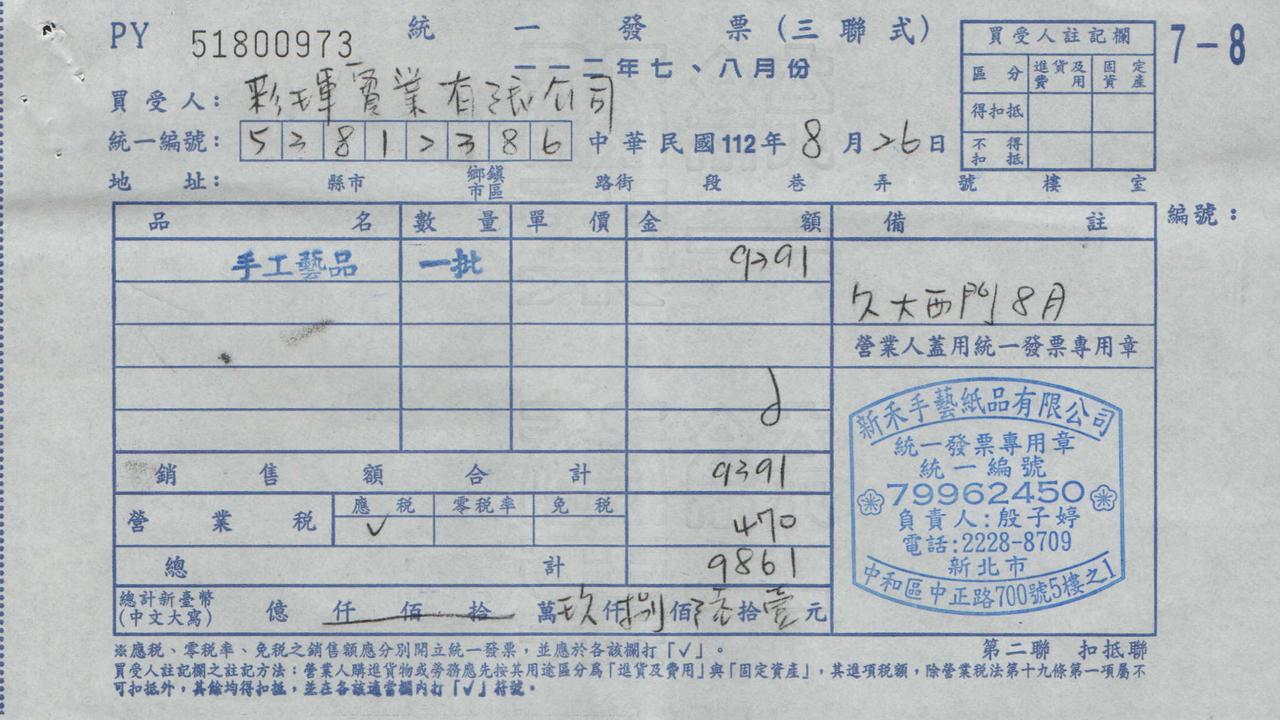 PY 51800973 統一發票(三聯式)
一一二年七、八月份
7-8
買受人註記欄
區分 進貨及費用 固定資產
得扣抵
不得扣抵
買受人: 彩琿實業有限公司
統一編號: 53812386 中華民國112年8月26日
地址: 縣市 鄉鎮市區 路街 段 巷 弄 號 樓 室
編號:
品名 數量 單價 金額 備註
手工藝品 一批 9391
久大西門8月
營業人蓋用統一發票專用章
銷售額合計 9391
營業稅 應稅 零稅率 免稅
✓ 470
總計 9861
總計新臺幣(中文大寫) 億 仟 佰 拾 萬玖仟捌佰陸拾壹元
新禾手藝紙品有限公司
統一發票專用章
統一編號
79962450
負責人:殷子婷
電話:2228-8709
新北市
中和區中正路700號5樓之1
※應稅、零稅率、免稅之銷售額應分別開立統一發票,並應於各該欄打「✓」。
第二聯 扣抵聯
買受人註記欄之註記方法:營業人購進貨物或勞務應先按其用途區分為「進貨及費用」與「固定資產」,其進項稅額,除營業稅法第十九條第一項屬不
可扣抵外,其餘均得扣抵,並在各該適當欄內打「✓」符號。